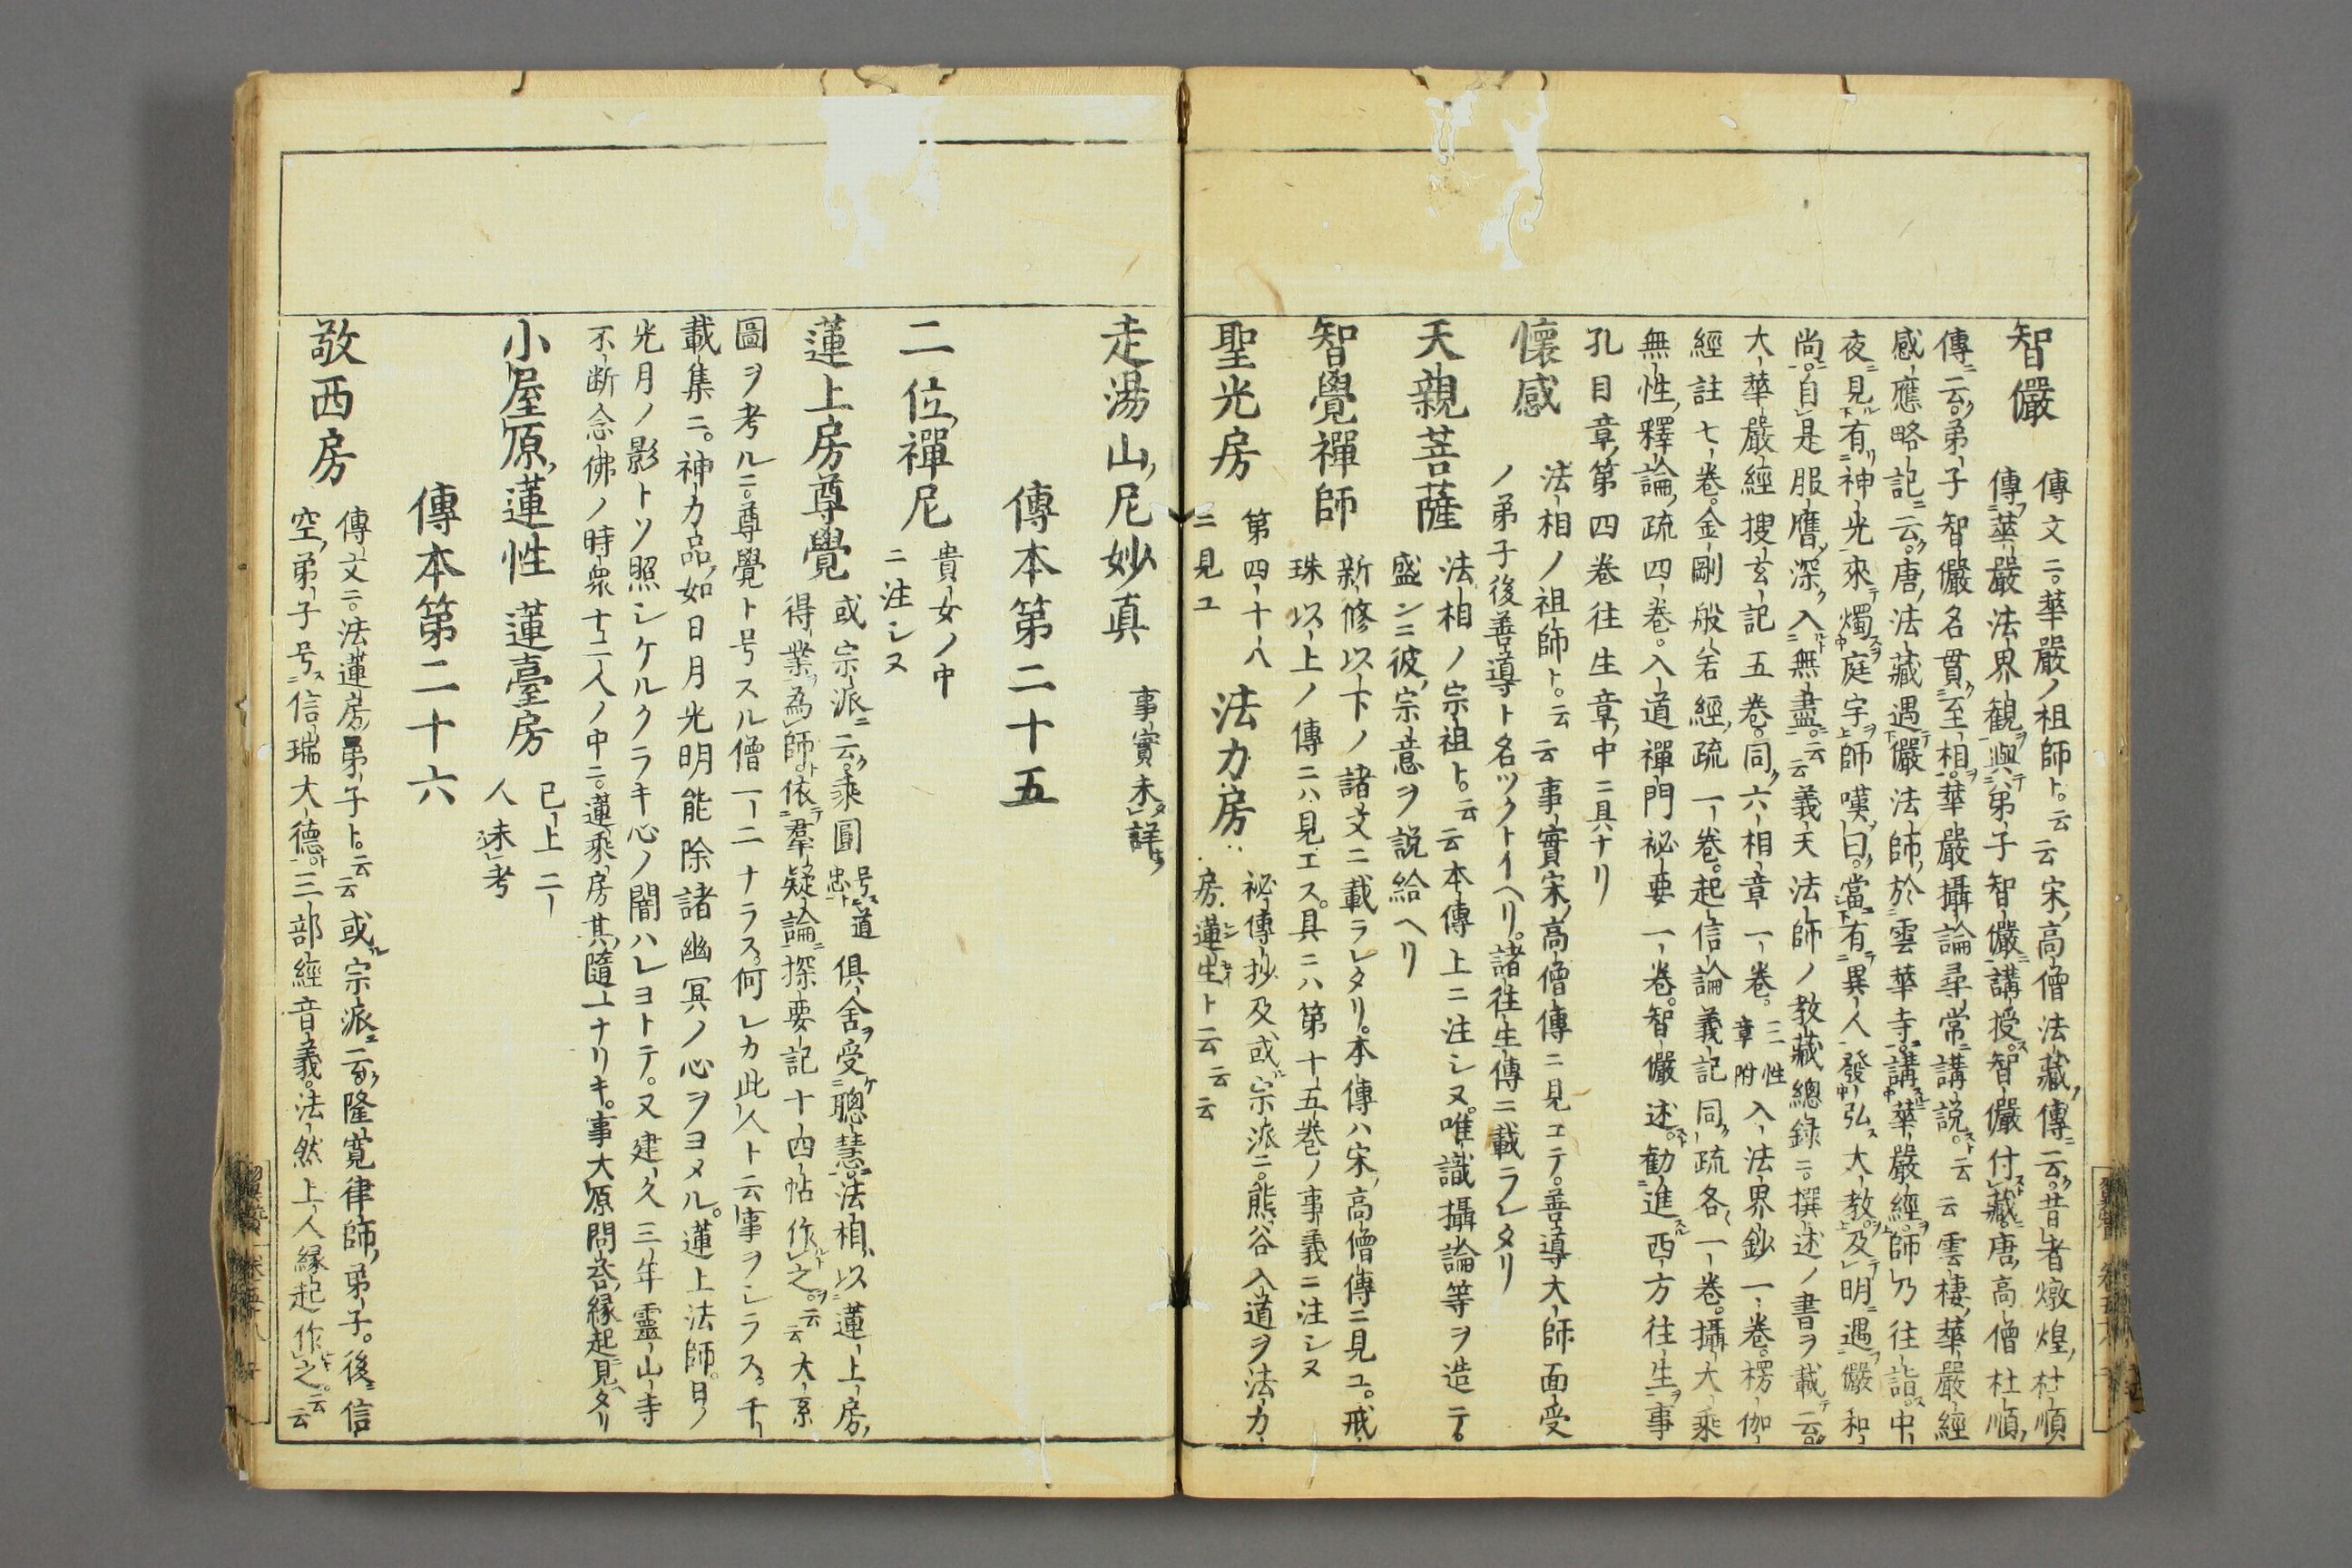 智儼
傳文ニ。華嚴ノ祖師ト。云云宋高僧法藏傳ニ云。昔者燉煌杜順
傳華嚴法界觀與弟子智儼講授。智儼付藏。唐高僧杜順
傳ニ云。弟子智儼名貫至相。華嚴攝論尋常講説。云云雲棲華嚴經
感應略記ニ云。唐法藏遇儼法師於雲華寺。講華嚴經。師乃往詣。中
夜見有神光來燭庭宇。師嘆曰。當有異人發弘大教。及明遇儼和
尚。自是服膺深入無盡。云云義天法師ノ教藏總錄ニ。撰述ノ書ヲ載テ云。
大華嚴經搜玄記五卷。同六相章一卷。三性章附入法界鈔一卷。楞伽
經註七卷。金剛般若經疏一卷。起信論義記同疏各一卷。攝大乘
無性釋論疏四卷。入道禪門祕要一卷。智儼述。勸進西方往生事
孔目章第四卷往生章中ニ具ナリ
懷感
法相ノ祖師ト。云云事實宋高僧傳ニ見エテ。善導大師面受
ノ弟子後善導ト名ツクトイヘリ。諸往生傳ニ載ラレタリ
天親菩薩
法相ノ宗祖ト。云云本傳上ニ注シヌ。唯識攝論等ヲ造テ。
盛ンニ彼宗意ヲ説給ヘリ
智覺禪師
新修以下ノ諸文ニ載ラレタリ。本傳ハ宋高僧傳ニ見ユ。戒
珠以上ノ傳ニハ見エス。具ニハ第十五卷ノ事義ニ注シヌ
聖光房
第四十八
ニ見ユ
法力房
祕傳抄及或宗派ニ。熊谷入道ヲ法力
房蓮生ト云云云
走湯山尼妙真
事實未詳
傳本第二十五
二位禪尼
貴女ノ中
ニ注シヌ
蓮上房尊覺
或宗派ニ云。乘圓号忠道俱舍受聰慧。法相以蓮上房
得業為師。依羣疑論探要記十四帖作之。云云大系
圖ヲ考ルニ。尊覺ト号スル僧一二ナラス。何レカ此人ト云事ヲシラス。千
載集ニ。神力品如日月光明能除諸幽冥ノ心ヲヨメル。蓮上法師。日ノ
光月ノ影トソ照シケルクラキ心ノ闇ハレヨトテ。又建久三年靈山寺
不断念佛ノ時衆十二人ノ中ニ。蓮乘房其隨一ナリキ。事大原問答縁起見タリ
小屋原蓮性 蓮臺房
已上二
人未考
傳本第二十六
敬西房
傳文ニ。法蓮房弟子ト。云云或宗派ニ云。隆寬律師弟子。後信
空弟子号信瑞大德。三部經音義。法然上人縁起作之。云云